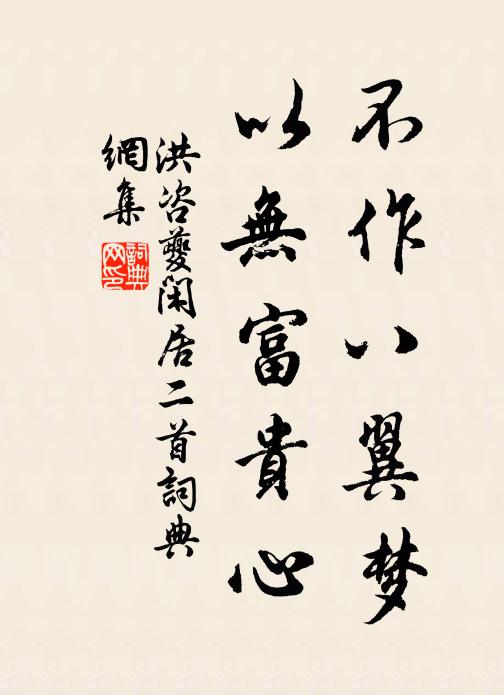 不作八翼梦
以無富貴心
洪咨夔閑居二首詞典
網集
詞典网印